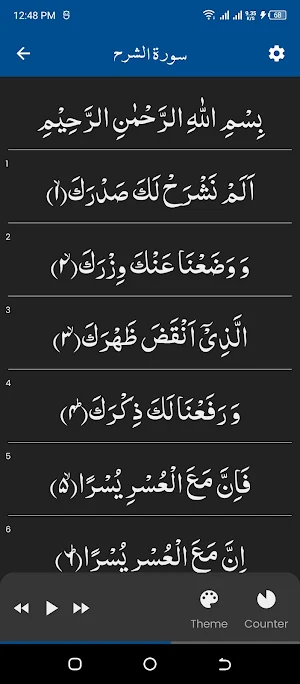 12:48 PM 9.35 K/s 68
سورة الشرح
بِسْمِ اللهِ الرَّحْمٰنِ الرَّحِيْمِ
1
اَلَمْ نَشْرَحْ لَكَ صَدْرَكَ ﴿۱﴾
2
وَ وَضَعْنَا عَنْكَ وِزْرَكَ ﴿۲﴾
3
الَّذِیْۤ اَنْقَضَ ظَهْرَكَ ﴿۳﴾
4
وَ رَفَعْنَا لَكَ ذِكْرَكَ ﴿۴﴾
5
فَاِنَّ مَعَ الْعُسْرِ یُسْرًا ﴿۵﴾
6
اِنَّ مَعَ الْعُسْرِ یُسْرًا ﴿۶﴾
Theme Counter